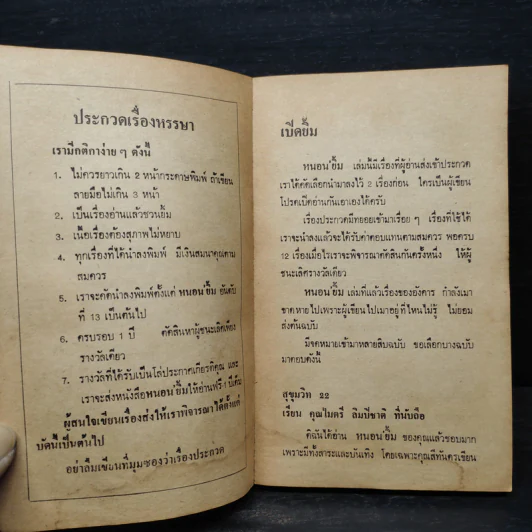 ประกวดเรื่องหรรษา
เรามีกติกาง่าย ๆ ดังนี้
1. ไม่ควรยาวเกิน 2 หน้ากระดาษพิมพ์ ถ้าเขียน
ลายมือไม่เกิน 3 หน้า
2. เป็นเรื่องอ่านแล้วชวนยิ้ม
3. เนื้อเรื่องต้องสุภาพไม่หยาบ
4. ทุกเรื่องที่ได้นำลงพิมพ์ มีเงินสมนาคุณตาม
สมควร
5. เราจะคัดนำลงพิมพ์ตั้งแต่ หนอนยิ้ม อันดับ
ที่ 13 เป็นต้นไป
6. ครบรอบ 1 ปี คัดสินหาผู้ชนะเลิศเพียง
รางวัลเดียว
7. รางวัลที่ได้รับเป็นโล่ประกาศเกียรติคุณ และ
เราจะส่งหนังสือหนอนยิ้มให้อ่านฟรี 1 ปีเต็ม
ผู้สนใจเขียนเรื่องส่งให้เราพิจารณาได้ตั้งแต่
บัดนี้เป็นต้นไป
อย่าลืมเขียนที่มุมซองว่าเรื่องประกวด
เปิดยิ้ม
หนอนยิ้ม เล่มนี้มีเรื่องที่ผู้อ่านส่งเข้าประกวด
เราได้คัดเลือกนำมาลงไว้ 2 เรื่องก่อน ใครเป็นผู้เขียน
โปรดเปิดอ่านกันเอาเองได้ครับ
เรื่องประกวดมีทยอยเข้ามาเรื่อย ๆ เรื่องที่ใช้ได้
เราจะนำลงแล้วจะได้รับค่าตอบแทนตามสมควร พอครบ
12 เรื่องเมื่อไรเราจะพิจารณาตัดสินกันครั้งหนึ่ง ให้ผู้
ชนะเลิศรางวัลเดียว
หนอนยิ้ม เล่มที่แล้วเรื่องของอังคาร กำลังเมา
ขาดหายไปเพราะผู้เขียนไปเมาอยู่ที่ไหนไม่รู้ ไม่ยอม
ส่งต้นฉบับ
มีจดหมายเข้ามาหลายสิบฉบับ ขอเลือกบางฉบับ
มาตอบดังนี้
สุขุมวิท 22
เรียน คุณไมตรี ลิมปิชาติ ที่นับถือ
ดิฉันได้อ่าน หนอนยิ้ม ของคุณแล้วชอบมาก
เพราะมีทั้งสาระและบันเทิง โดยเฉพาะคุณสีทันดรเขียน